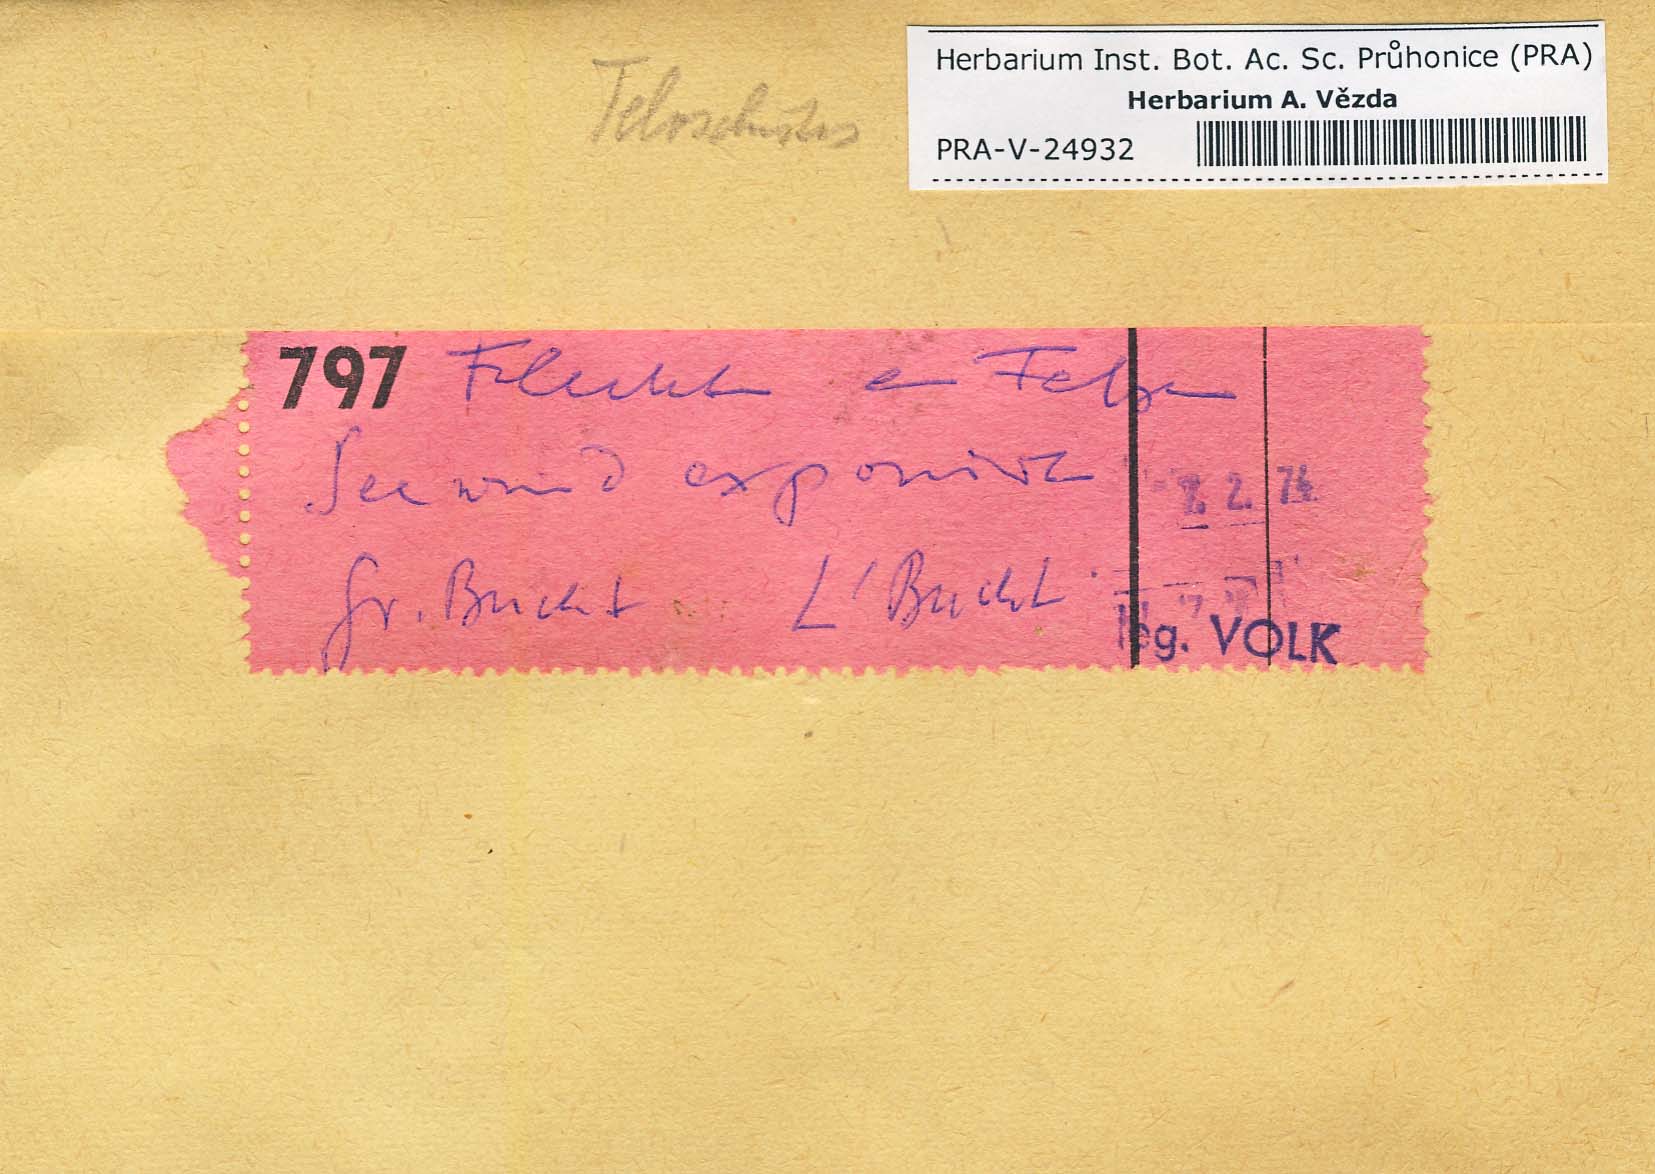 Herbarium Inst. Bot. Ac. Sc. Průhonice (PRA)
Herbarium A. Vězda
PRA-V-24932
Teloschistes
797 Flechte Felsen
Seewind exponiert
2. 74
Gr. Bucht L' Bucht
leg. VOLK